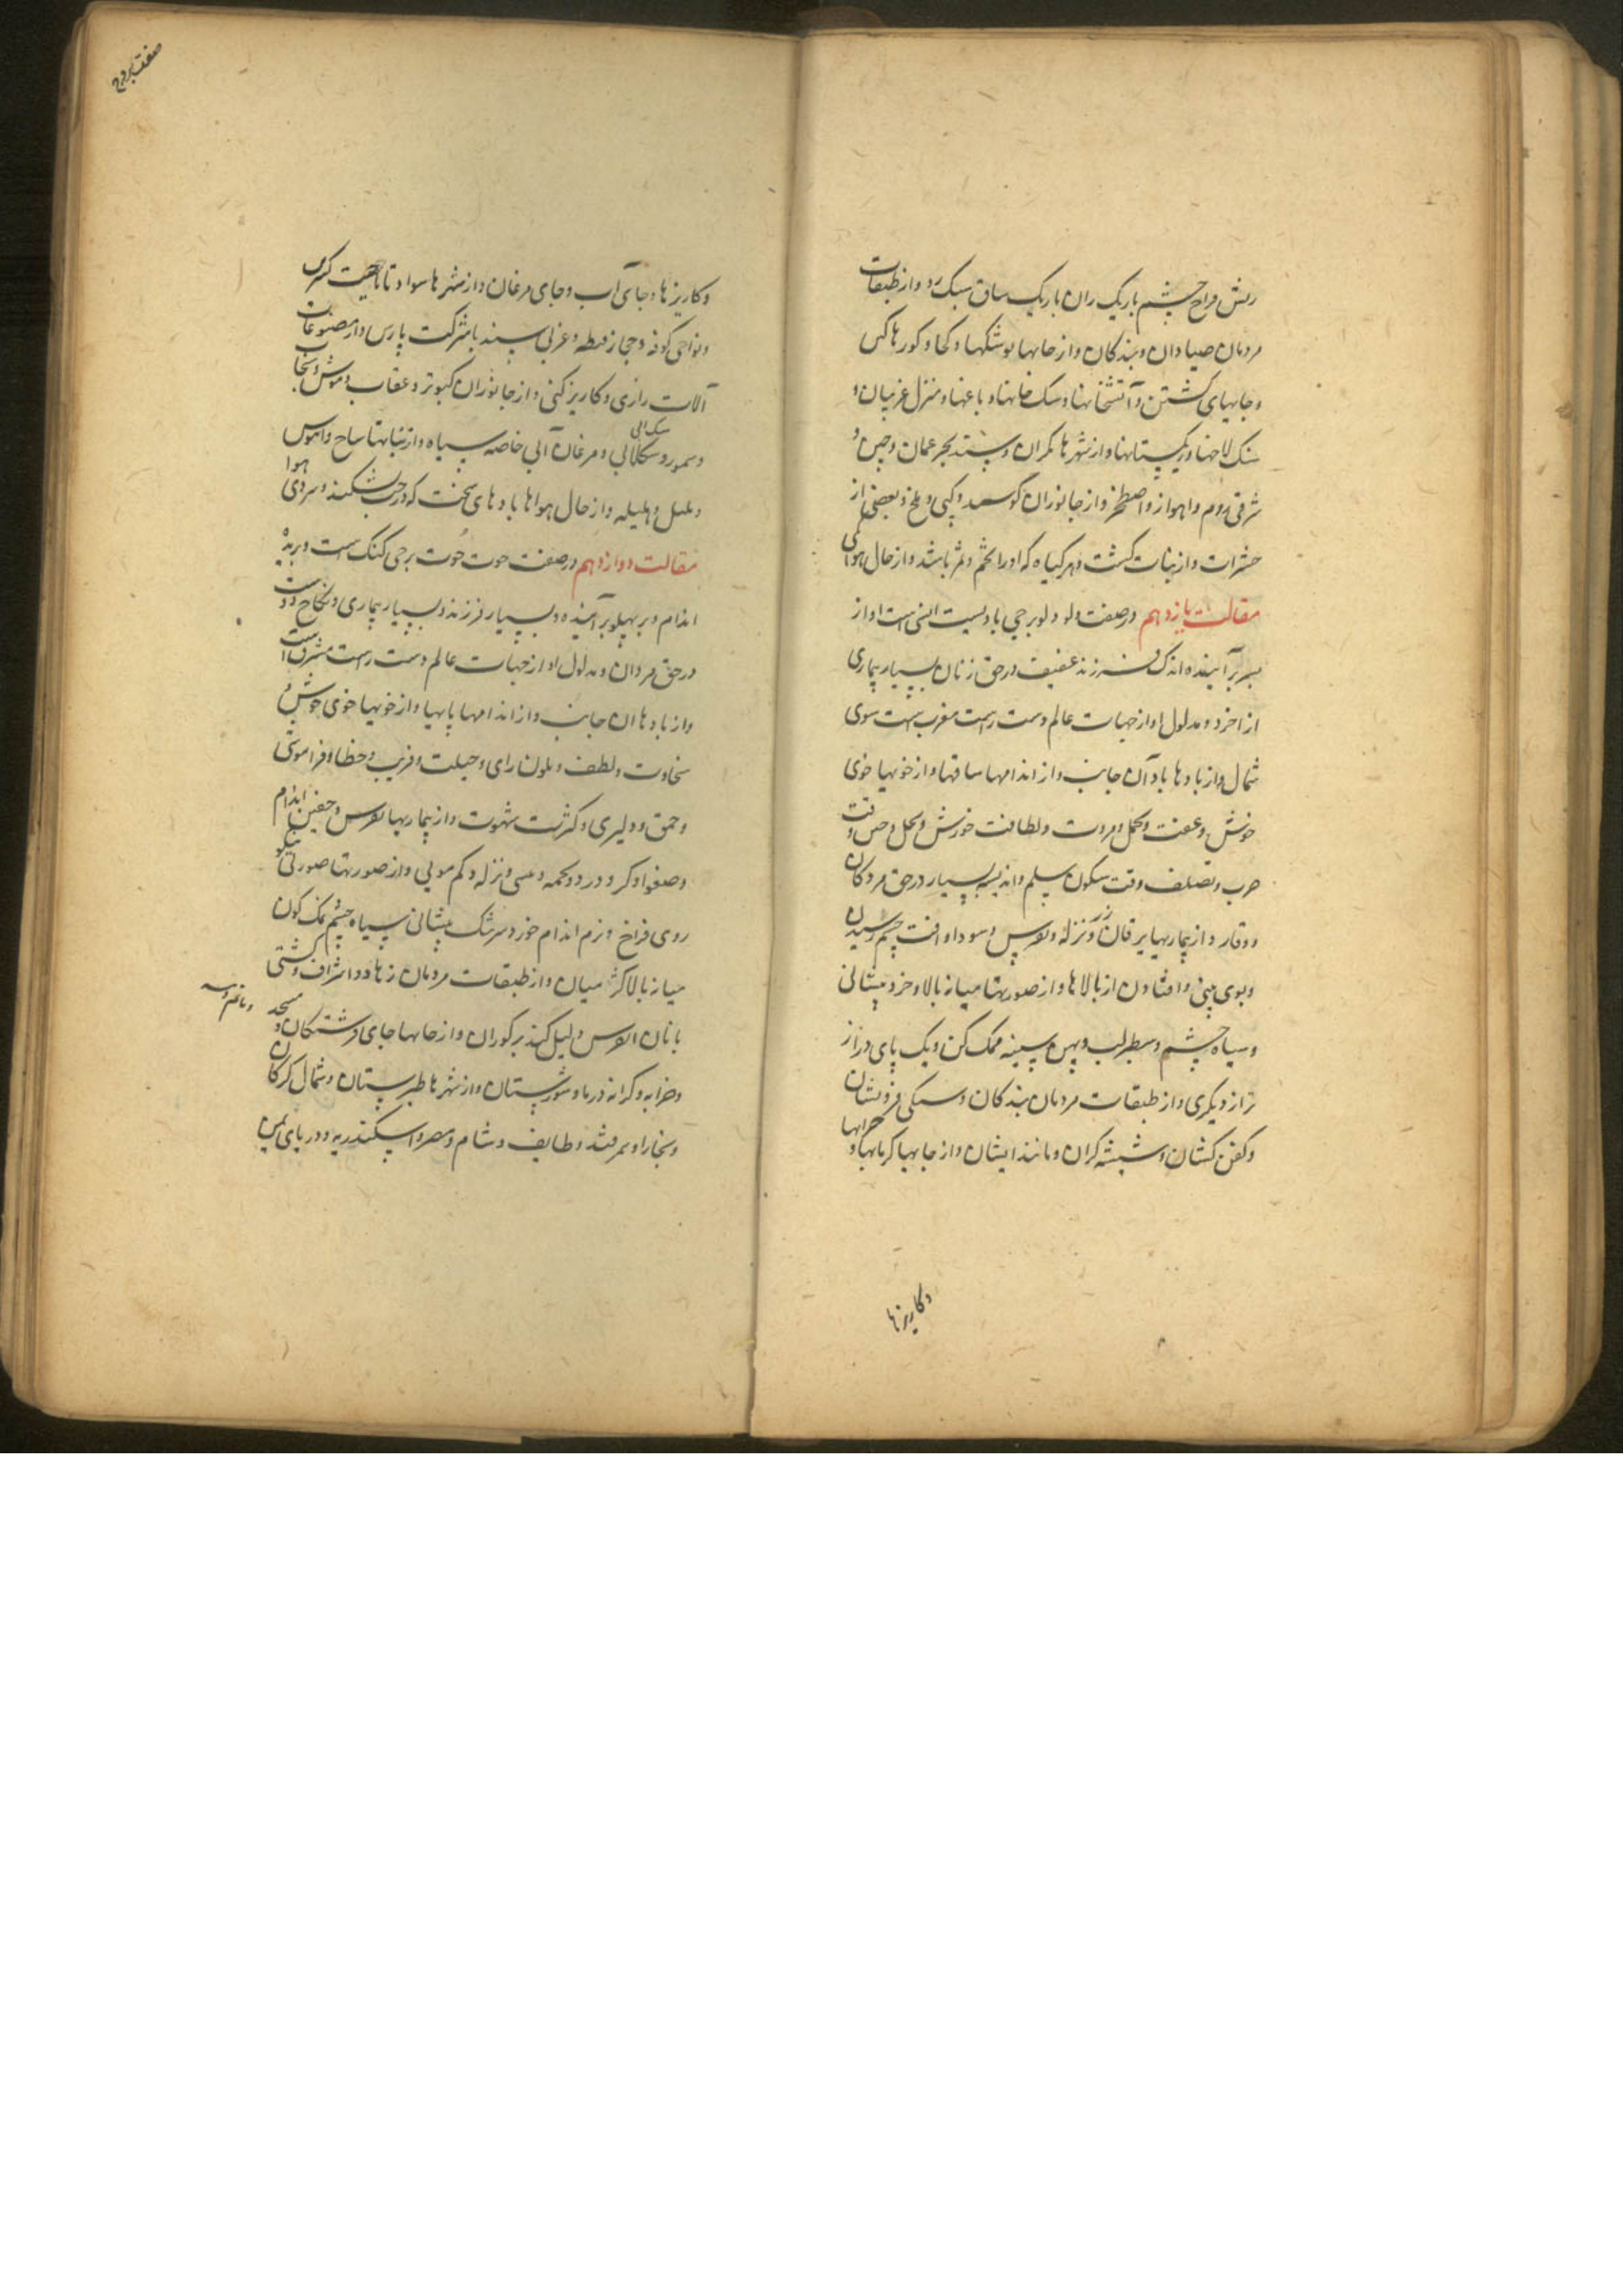 ریش فراخ چشم باریک ران باریک ساق سبک رو و از طبقات
مردمان صیادان و بندکان و از جایها کوشکها و کورها
و جایهای کشتن و آتشخانها و سک خانها و باغها و منزل غریبان و
سنک لاخها و ریکستانها و از شهرها مکران و سند بحر عمان و چین و
شرقی روم و اهواز و اصطخر و از جانوران کوسپند و کپی و ملخ و بعضی از
حشرات و از نبات کشت و هر کیاه که او را تخم و ثمر باشد و از حال هوای
مقالت یازدهم در صفت دلو دلو برجی بادیست است او از
بسر برآینده اندک فرزند عفیف در حق زنان بسیار بیماری
از اخرد و مدلول او از جهات عالم دست راست مغرب است سوی
شمال و از بادها باد آن جانب و از اندامها ساقها و از خویها خوی
خوش و عفت و تحمل و مروت و لطافت خورش و وقت
حرب و تصلف وقت سکون سلیم و اندیشه بسیار در حق مردکان
و وقار و از بیماریها یرقان زرد و نزله و نقرس و سودا و افت چشم رسیدن
و بوی بینی و افتادن از بالاها و از صورتها میانه بالا و خرد پیشانی
و سیاه چشم و سطبر لب و پهن سینه و یک پای دراز
تر از دیکری و از طبقات مردمان بندکان و فروشان
و کفن کشان و شیشه کران و مانند ایشان و از جایها کرمابها و
و کاریزها
صفت بروج
و کاریزها و جای آب و جای مرغان و از شهرها سواد تا ناحیت
و نواحی کوفه و حجاز و قبطه و غربی سند با شرکت پارس و از مصنوعات
آلات رازی و کاریز کنی و از جانوران کبوتر و عقاب و موش و سنجاب
و سمور و سکلابی و مرغان آبی خاصه سیاه و از نباتها ساج و ابنوس
سک آبی
و بلبل و هلیله و از حال هواها بادهای سخت که درخت شکند و سردی هوا
مقالت دوازدهم در صفت حوت حُوت برجی کنک است و بریده
اندام و بر پهلو برآینده و بسیار فرزند و بسیار بیماری و نکاح دوست
در حق مردان و مدلول او از جهات عالم دست راست مشرق است
و از بادها ان جانب و از اندامها پایها و از خویها خوی خوش و
سخاوت و لطف و تلون رای و حیلت و فریب و خطا و فراموشی
و حمق و دلیری و کثرت شهوت و از بیماریها نقرس و اندام
و صفرا و کر و درد و تخمه و نزله و کم مویی و از صورتها صورتی نیکو
روی فراخ و نرم اندام خرد سر تنک پیشانی سیاه چشم کون
میانه بالا کژ میان و از طبقات مردمان زهاد و اشراف و کشتی
بانان و از جایها جای فرشتکان و مسجد
و ماتم و
و خرابه و کرانه دریا و شورستان و از شهرها طبرستان و شمال کرکان
و بخارا و سمرقند و طایف و شام و مصر و اسکندریه و دریای یمن